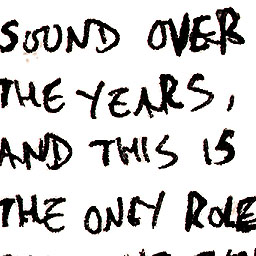 SOUND OVER
THE YEARS,
AND THIS IS
THE ONLY ROLE